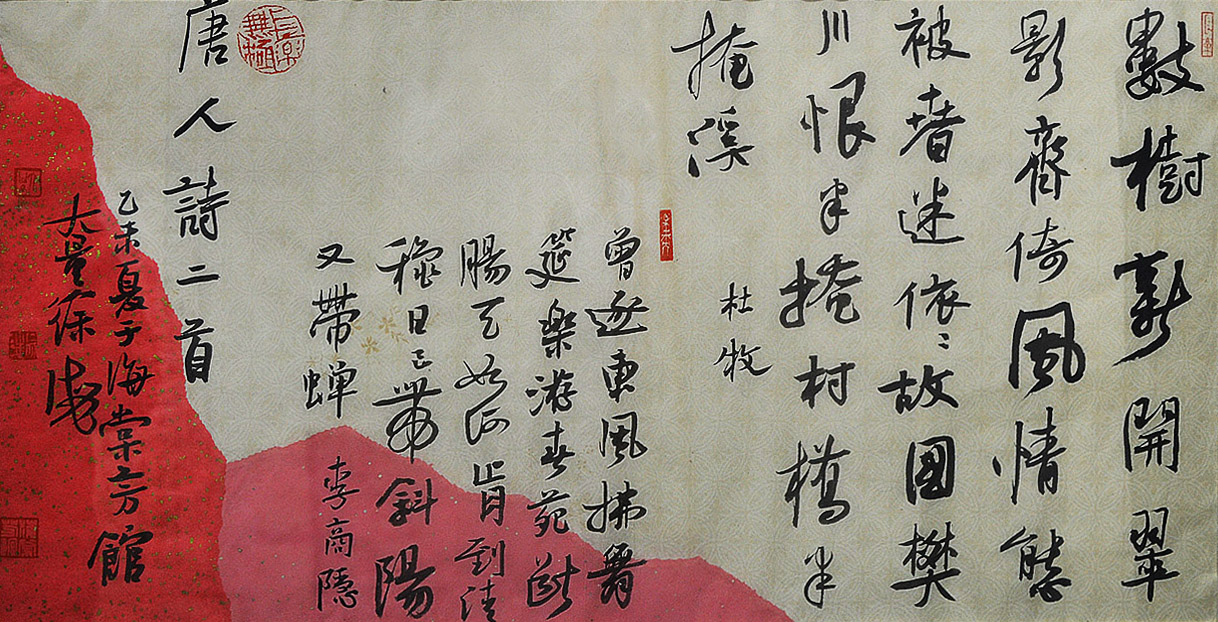 數樹新開翠
影齊倚風情態
被春迷依々故國樊
川恨半掩村橋半
掩溪
杜牧
曾逐東風拂舞
筵樂游春苑斷
腸天如何肯到清
穐日已帶斜陽
又帶蟬 李商隱
長樂無極
唐人詩二首
乙未夏于海棠方館
大量徐